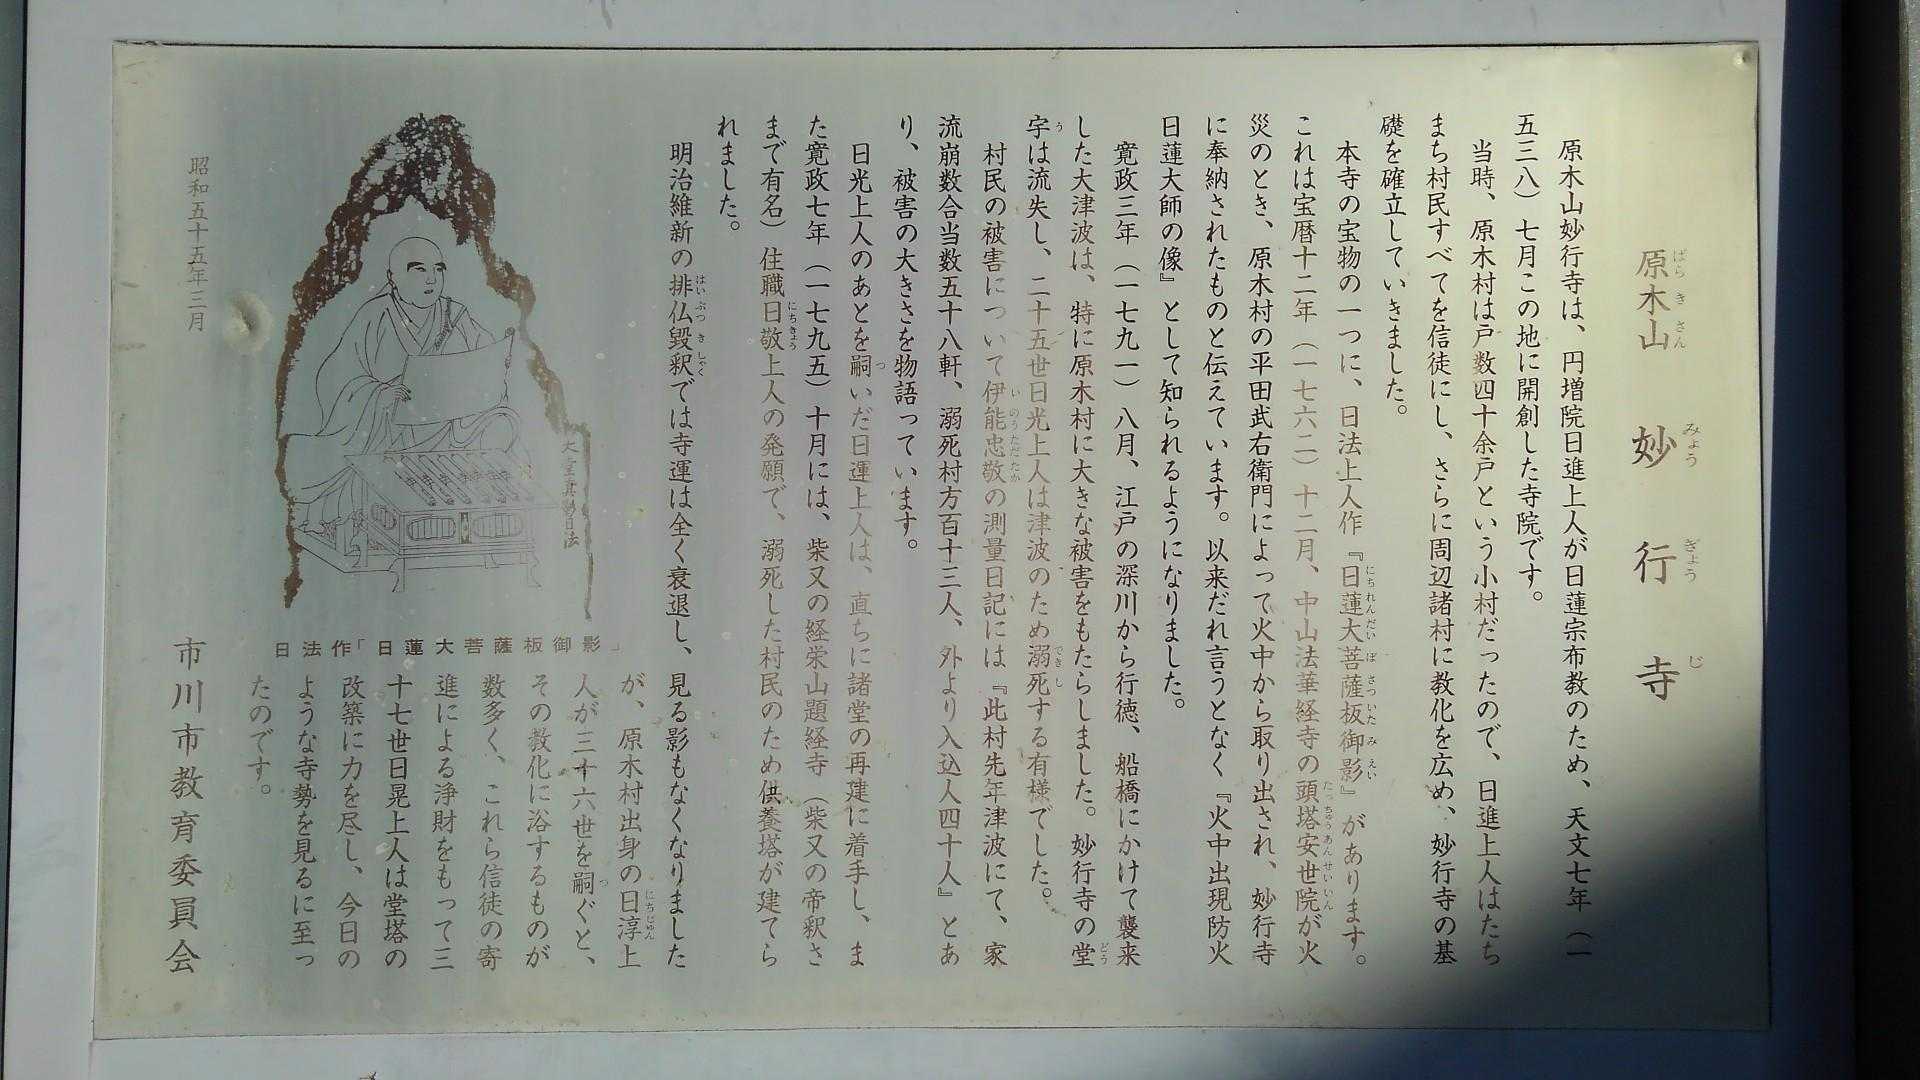 原木山　妙行寺
ばらきさん　みょうぎょうじ
原木山妙行寺は、円増院日進上人が日蓮宗布教のため、天文七年（一
五三八）七月この地に開創した寺院です。
当時、原木村は戸数四十余戸という小村だったので、日進上人はたち
まち村民すべてを信徒にし、さらに周辺諸村に教化を広め、妙行寺の基
礎を確立していきました。
本寺の宝物の一つに、日法上人作『日蓮大菩薩板御影』があります。
にちれんだいぼさついたみえい
これは宝暦十二年（一七六二）十二月、中山法華経寺の頭塔安世院が火
たっちゅうあんせいいん
災のとき、原木村の平田武右衛門によって火中から取り出され、妙行寺
に奉納されたものと伝えています。以来だれ言うとなく『火中出現防火
日蓮大師の像』として知られるようになりました。
寛政三年（一七九一）八月、江戸の深川から行徳、船橋にかけて襲来
した大津波は、特に原木村に大きな被害をもたらしました。妙行寺の堂
どう
宇は流失し、二十五世日光上人は津波のため溺死する有様でした。
う　できし
村民の被害について伊能忠敬の測量日記には『此村先年津波にて、家
いのうただたか
流崩数合当数五十八軒、溺死村方百十三人、外より入込人四十人』とあ
り、被害の大きさを物語っています。
日光上人のあとを嗣いだ日運上人は、直ちに諸堂の再建に着手し、ま
つ
た寛政七年（一七九五）十月には、柴又の経栄山題経寺（柴又の帝釈さ
まで有名）住職日敬上人の発願で、溺死した村民のため供養塔が建てら
にちきょう
れました。
明治維新の排仏毀釈では寺運は全く衰退し、見る影もなくなりました
はいぶつきしゃく
が、原木村出身の日淳上
にちじゅん
人が三十六世を嗣ぐと、
つ
その教化に浴するものが
数多く、これら信徒の寄
進による浄財をもって三
十七世日晃上人は堂塔の
改築に力を尽し、今日の
ような寺勢を見るに至っ
たのです。
日法作「日蓮大菩薩板御影」
昭和五十五年三月
市川市教育委員会